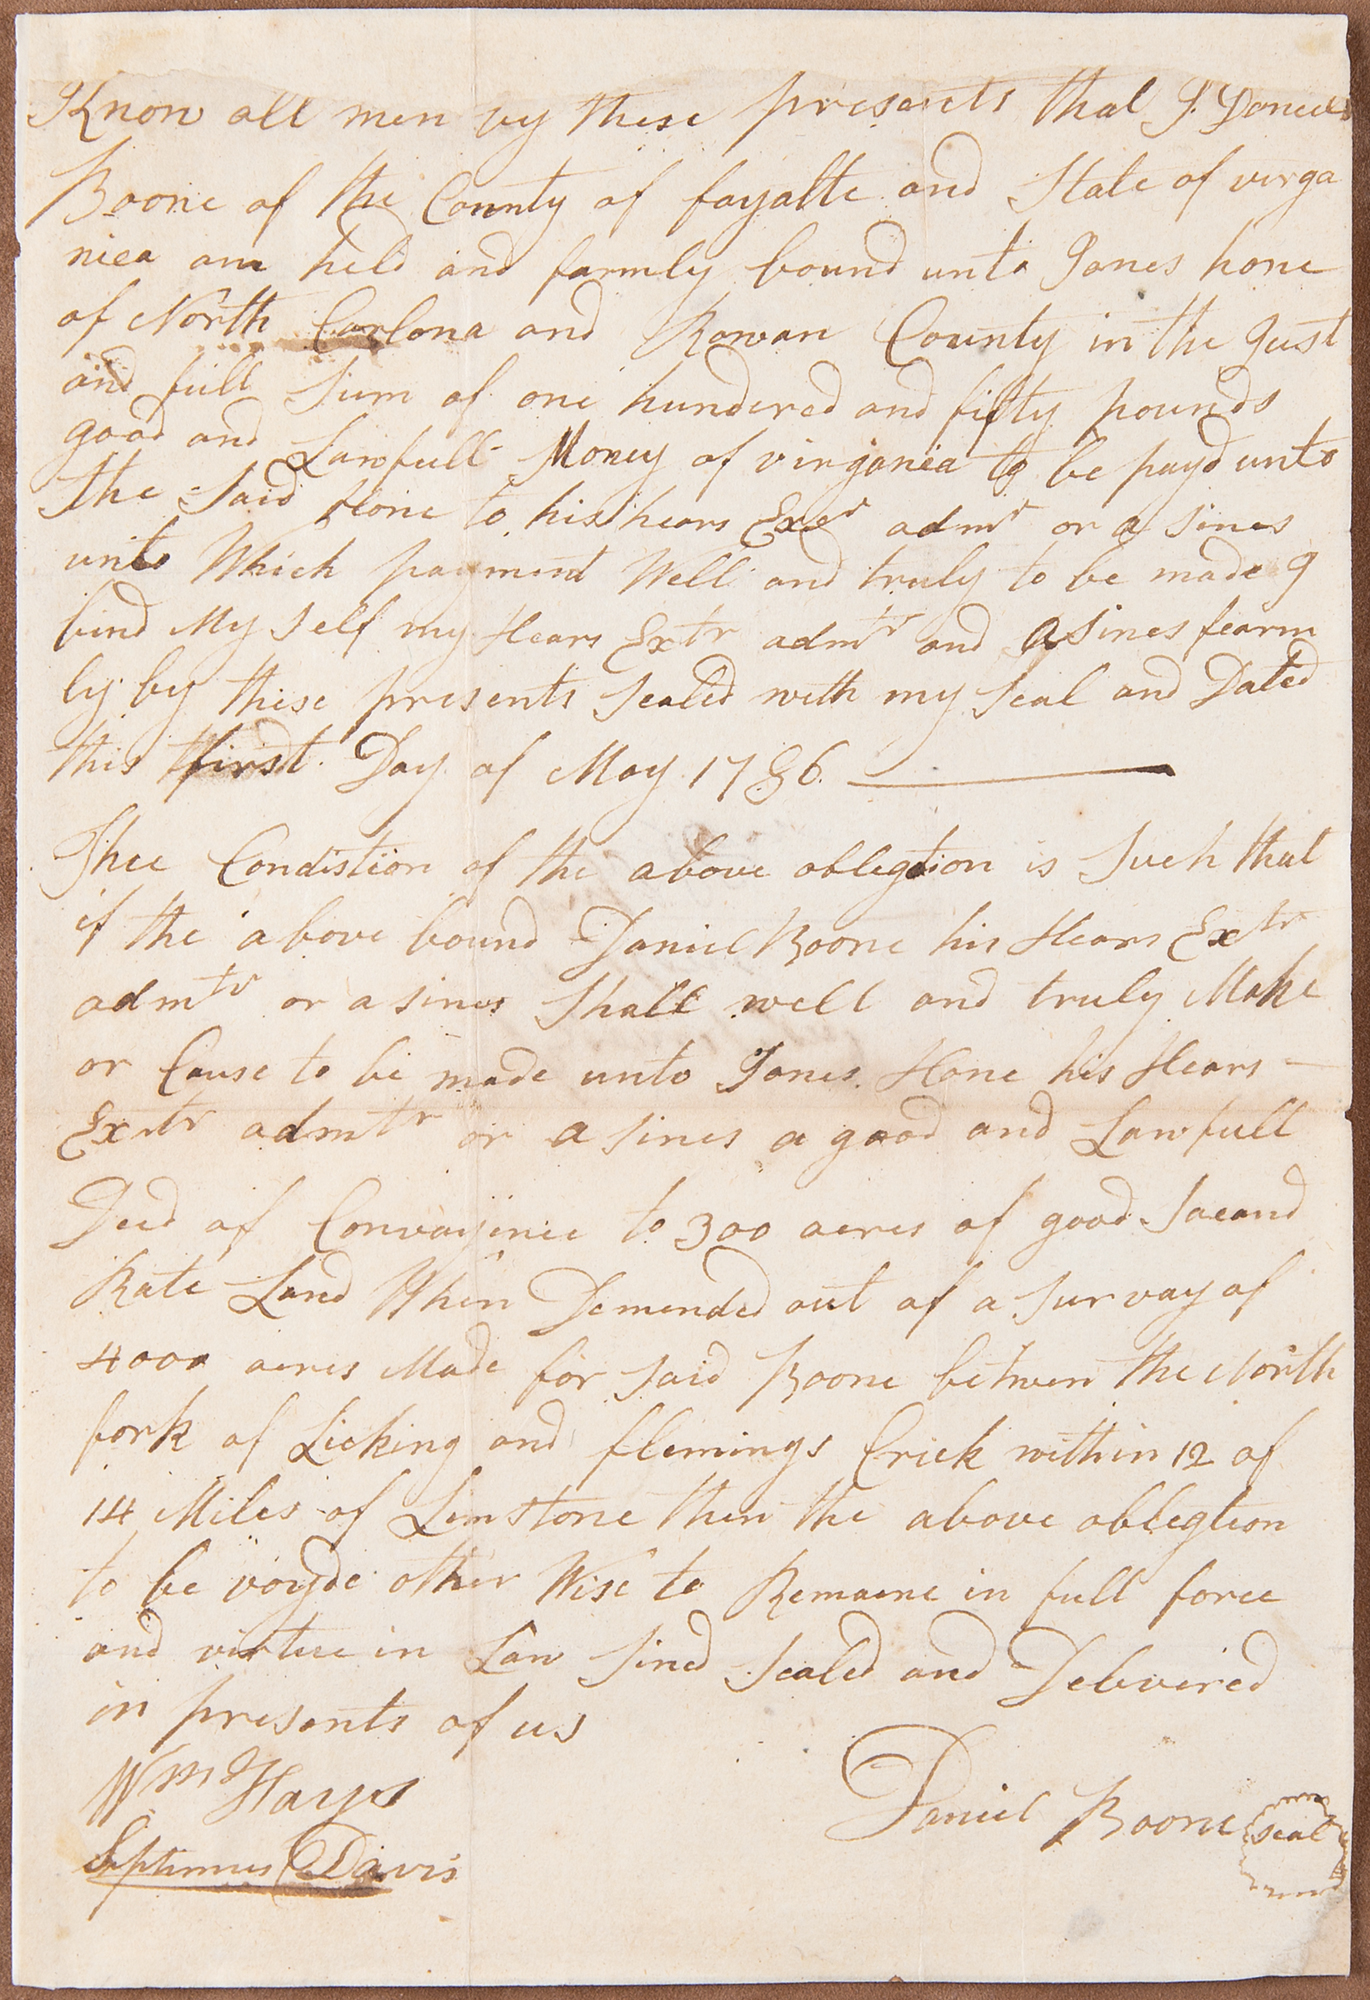 Know all men by these presents that I Daniel
Boone of the County of fayatte and State of virga
niea am held and farmly bound unto Jones hone
of North Carlona and Rowan County in the Just
and full Sum of one hundered and fifty pounds
good and Lawfull Money of virganea to be payd unto
the Said Hone to his hears Exer admr or a sines
unto Which payment Well and truly to be made I
bind My self my Hears Extr admtr and Asines fearm
ly by these presents Sealed with my Seal and Dated
this first Day of May 1786
Thee Condistion of the above oblegtion is Such that
if the above bound Daniel Boone his Hears Extr
admtr or a sines Shall well and truly Make
or Cause to be made unto Jones Hone his Hears
Extr admtr or a sines a good and Lawfull
Deed of Convayince to 300 acres of good Sacand
Rate Land When Demended out of a Survay of
4000 acres Made for Said Boone betwen the North
fork of Licking and flemings Crick within 12 of
14 Miles of Limstone then the above oblegtion
to be voyde other Wise to Remaene in full force
and virtue in Law Sined Sealed and Delivired
in presents of us
Wm Hays
Septimus Davis
Daniel Boone Seal